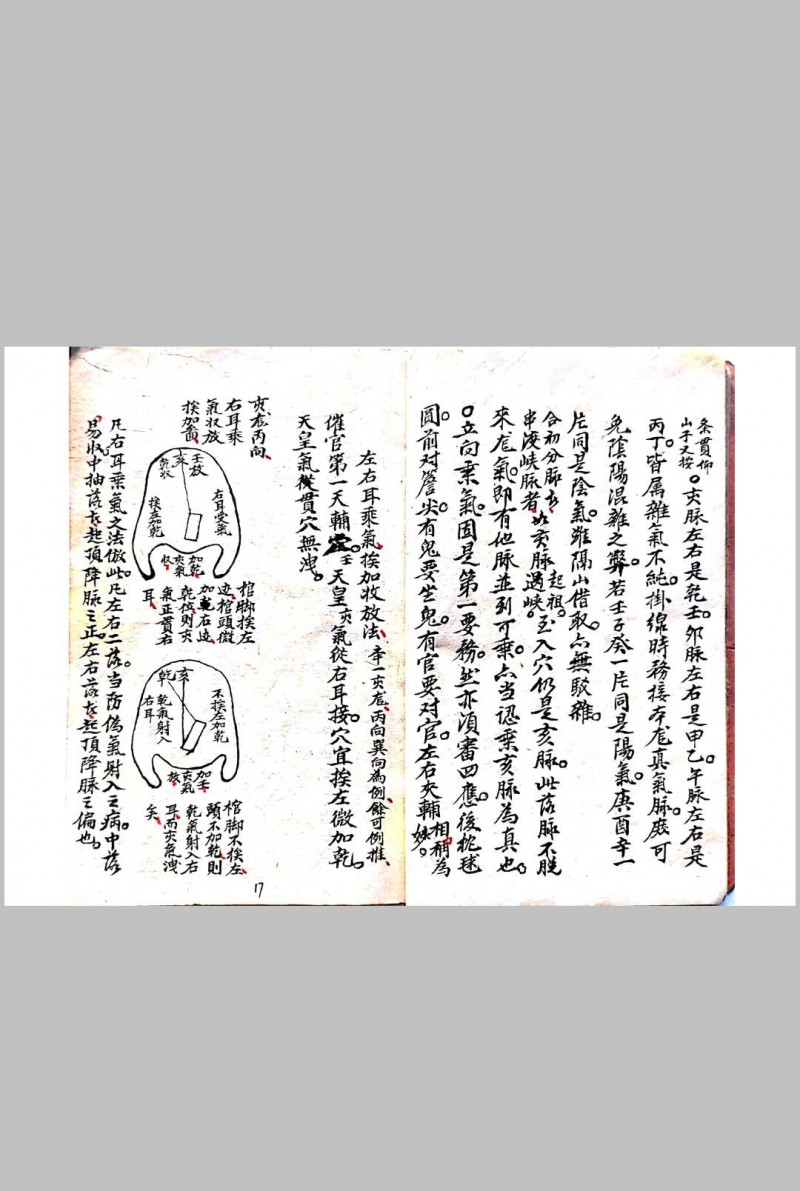 条貫仰
山子又按
亥脉左右是乾壬。卯脉左右是甲乙。午脉左右是
丙丁。皆属雜氣不純。掛線時務接本龙真氣脉。庶可
免陰陽混雜之弊。若壬子癸一片同是陽氣。庚酉辛一
片同是陰氣。雖隔山借取。亦無駁雜。
合初分脉。
起祖。
串渡峡脉者。如亥脉過峡。至入穴仍是亥脉。此落脉不脱
來龙氣。即有他脉並到可乘。亦当認乘亥脉為真也。
〇立向乘氣。固是第一要務。然亦須審四應。後枕球
圆。前对簷尖。有鬼要坐鬼。有官要对官。左右夾輔
相称為
妙。
左右耳乘氣、挨加收放法、
亥龙、丙向巽向為例、餘可例推、
催官第一天輔穴。壬
天皇亥氣從右耳接。穴宜挨左微加乾。
天皇氣從貫穴無洩。
亥龙丙向、
右耳乘
氣收放
挨加圖、
壬放
亥
乾收
右耳受氣
挨左加乾
加乾
亥氣
收
棺脚挨左
迹棺頭微
加乾右迹
乾位則亥
氣正貫右
耳、
亥
乾
不挨左加乾
乾氣射入
右耳
加壬
亥氣
放
棺脚不挨左、
頭不加乾、則
乾氣射入右
耳而亥氣洩
矣、
凡右耳乘氣之法倣此。凡左右二落。当防偽氣射入之病。中落
易收。中抽落者、起頂降脉之正。左右落者、起頂降脉之偏也。
17